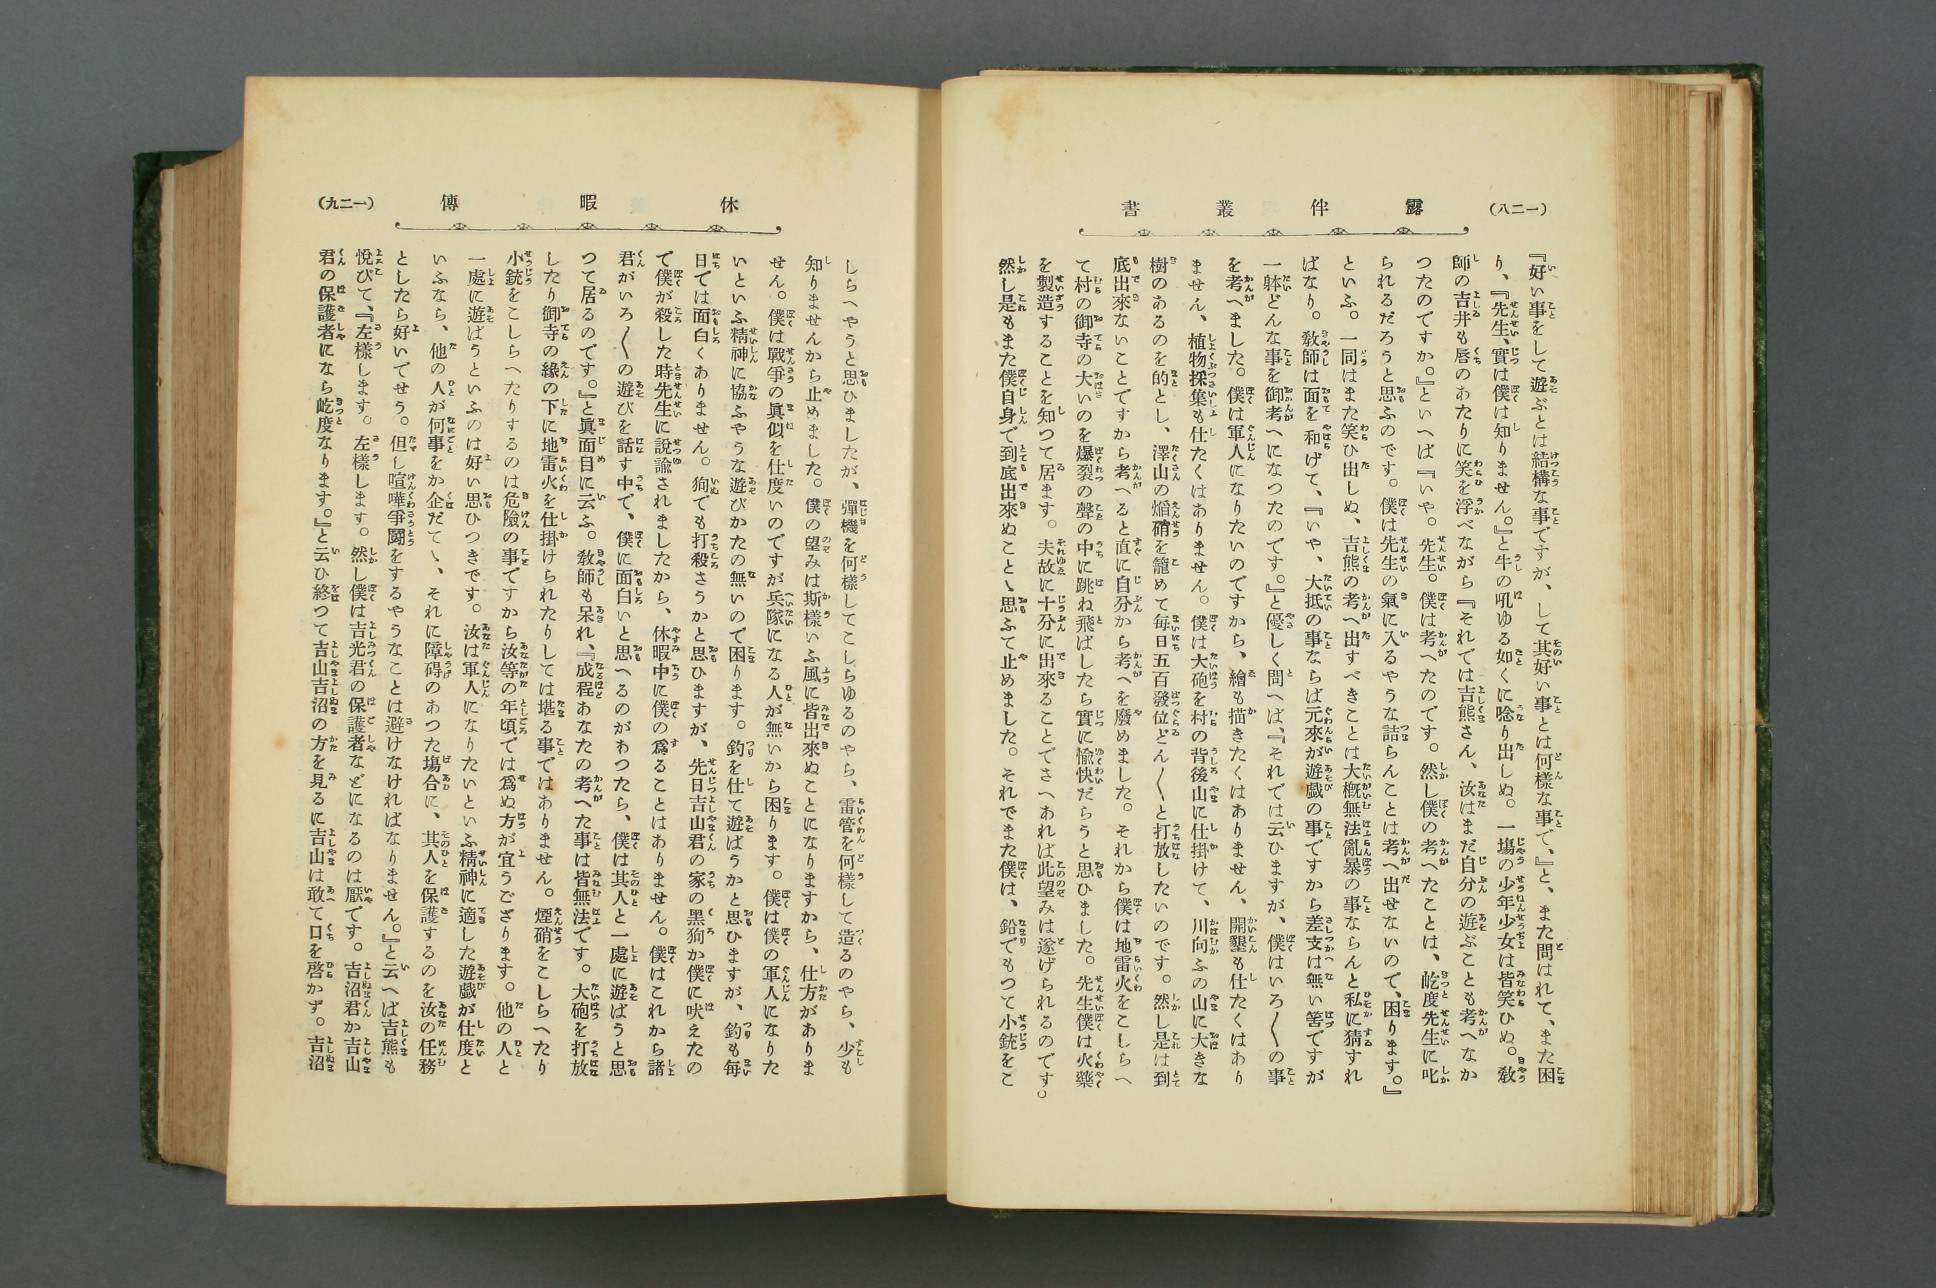 （一二八）
露伴叢書
『好い事をして遊ぶとは結構な事ですが、して其好い事とは何樣な事で、』と、また問はれて、また困
り、『先生、實は僕は知りません。』と牛の吼ゆる如くに唸り出しぬ。一塲の少年少女は皆笑ひぬ。敎
師の吉井も唇のあたりに笑を浮べながら『それでは吉熊さん、汝はまだ自分の遊ぶことも考へなか
つたのですか。』といへば『いや。先生。僕は考へたのです。然し僕の考へたことは、屹度先生に叱
られるだろうと思ふのです。僕は先生の氣に入るやうな詰らんことは考へ出せないので、困ります。』
といふ。一同はまた笑ひ出しぬ、吉熊の考へ出すべきことは大概無法亂暴の事ならんと私に猜すれ
ばなり。敎師は面を和げて、『いや、大抵の事ならば元來が遊戯の事ですから差支は無い筈ですが
一躰どんな事を御考へになつたのです。』と優しく問へば、『それでは云ひますが、僕はいろ〱の事
を考へました。僕は軍人になりたいのですから、繪も描きたくはありません、開墾も仕たくはあり
ません、植物採集も仕たくはありません。僕は大砲を村の背後山に仕掛けて、川向ふの山に大きな
樹のあるのを的とし、澤山の熖硝を籠めて每日五百發位どん〱と打放したいのです。然し是は到
底出來ないことですから考へると直に自分から考へを廢めました。それから僕は地雷火をこしらへ
て村の御寺の大いのを爆裂の聲の中に跳ね飛ばしたら實に愉快だらうと思ひました。先生僕は火藥
を製造することを知つて居ます。夫故に十分に出來ることでさへあれば此望みは遂げられるのです。
然し是もまた僕自身で到底出來ぬことゝ思ふて止めました。それでまた僕は、鉛でもつて小銃をこ
（一二九）
休暇傳
しらへやうと思ひましたが、彈機を何樣してこしらゆるのやら、雷管を何樣して造るのやら、少も
知りませんから止めました。僕の望みは斯樣いふ風に皆出來ぬことになりますから、仕方がありま
せん。僕は戰爭の眞似を仕度いのですが兵隊になる人が無いから困ります。僕は僕の軍人になりた
いといふ精神に協ふやうな遊びかたの無いので困ります。釣を仕て遊ばうかと思ひますが、釣も每
日では面白くありません。狗でも打殺さうかと思ひますが、先日吉山君の家の黑狗か僕に吠えたの
で僕が殺した時先生に說諭されましたから、休暇中に僕の爲ることはありません。僕はこれから諸
君がいろ〱の遊びを話す中で、僕に面白いと思へるのがあつたら、僕は其人と一處に遊ばうと思
つて居るのです。』と眞面目に云ふ。敎師も呆れ、『成程あなたの考へた事は皆無法です。大砲を打放
したり御寺の緣の下に地雷火を仕掛けられたりしては堪る事ではありません。煙硝をこしらへたり
小銃をこしらへたりするのは危險の事ですから汝等の年頃では爲ぬ方が宜うござります。他の人と
一處に遊ばうといふのは好い思ひつきです。汝は軍人になりたいといふ精神に適した遊戯が仕度と
いふなら、他の人が何事をか企だてゝ、それに障碍のあつた塲合に、其人を保護するのを汝の任務
としたら好いでせう。但し喧嘩爭鬪をするやうなことは避けなければなりません。』と云へば吉熊も
悅びて、『左樣します。左樣します。然し僕は吉光君の保護者などになるのは厭です。吉沼君か吉山
君の保護者になら屹度なります。』と云ひ終つて吉山吉沼の方を見るに吉山は敢て口を啓かず。吉沼